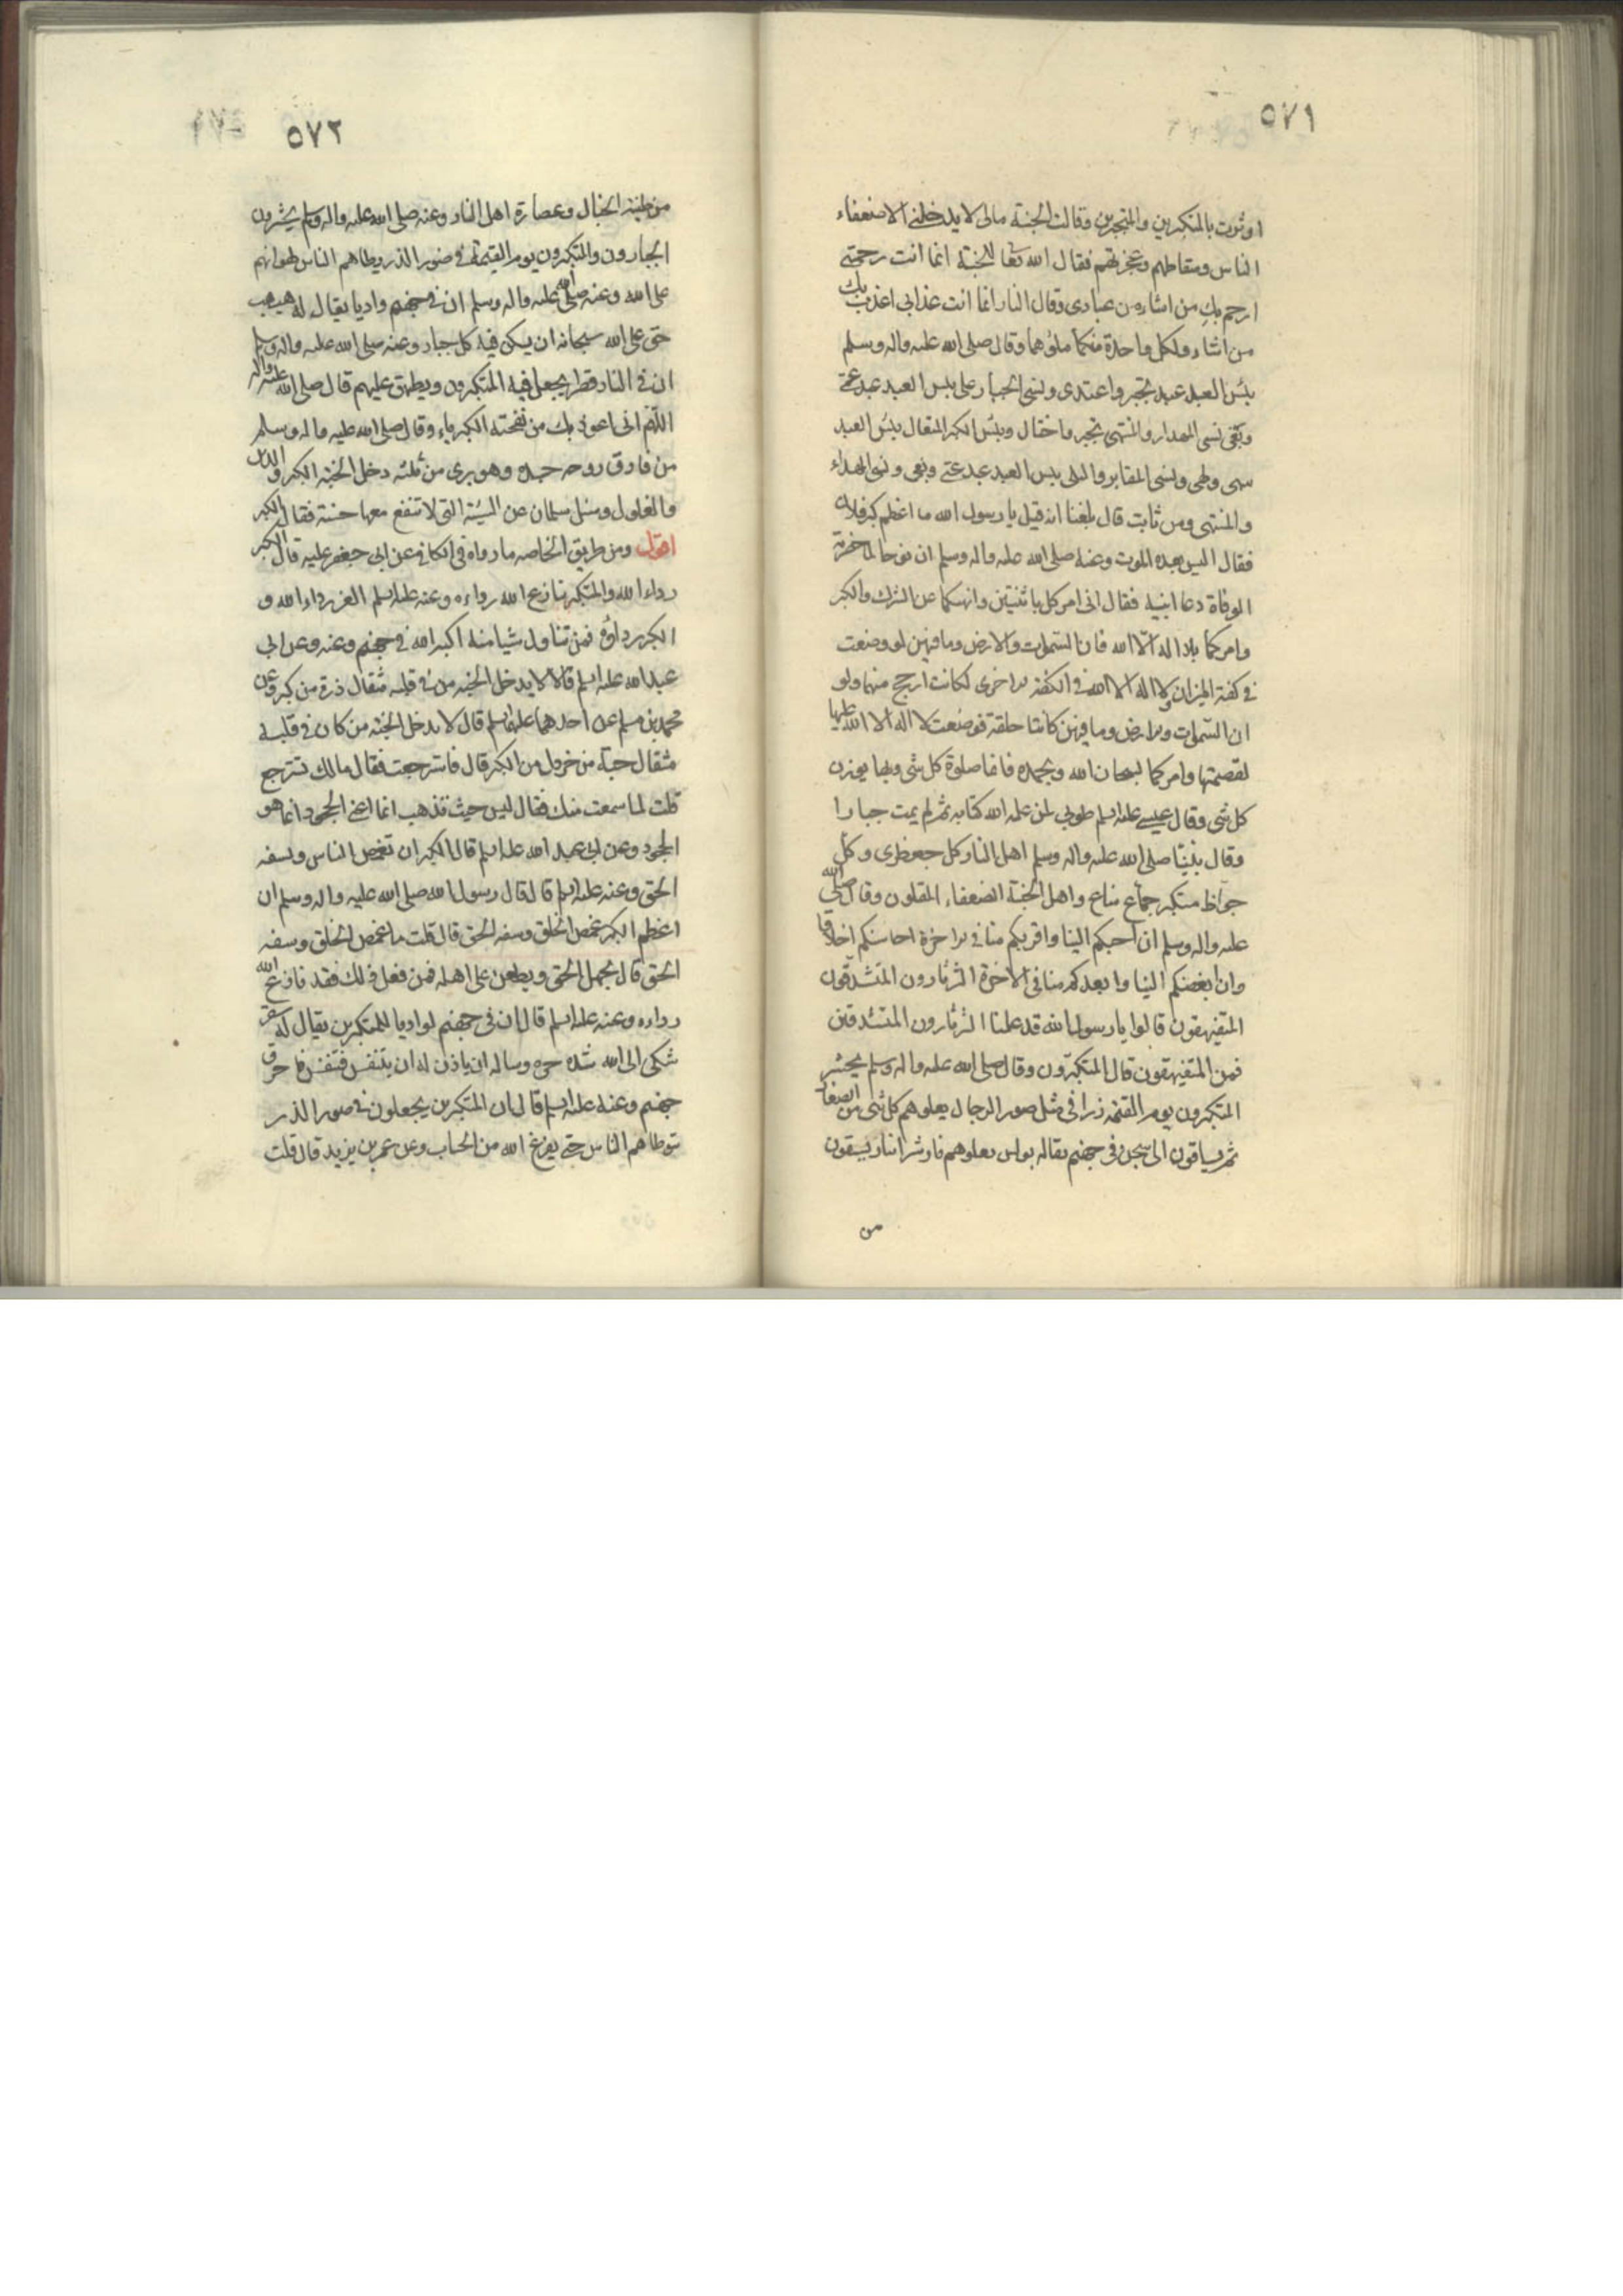 ٥٧١
اوثرت بالمتكبرين والمتجبرين وقالت الجنة مالى لا يدخلنى الا ضعفاء
الناس وسقاطهم وعجزتهم فقال الله تعالى للجنة انما انت رحمتى
ارحم بك من اشاء من عبادى وقال للنار انما انت عذابى اعذب بك
من اشاء ولكل واحدة منكما ملؤهما وقال صلى الله عليه واله وسلم
بئس العبد عبد تجبر واعتدى ونسى الجبار على بئس العبد عبد عتى
وبغى نسى المبدا والمنتهى تجبر واختال وبئس الكبر المتعال بئس العبد
سهى ولهى ونسى المقابر والبلى بئس العبد عبد عتى وبغى ونسى المبداء
والمنتهى ومن ثابت قال بلغنا انه قيل يا رسول الله ما اعظم كبر فلان
فقال اليس بعده الموت وعنه صلى الله عليه واله وسلم ان نوحا لما حضرته
الوفاة دعا ابنيه فقال انى امركما باثنتين وانهيكما عن الشرك والكبر
وامركما بلا اله الا الله فان السموات والارض وما فيهن لو وضعت
فى كفة الميزان ولا اله الا الله فى الكفة الاخرى لكانت ارجح منها ولو
ان السموات والارض وما فيهن كانتا حلقة فوضعت لا اله الا الله عليها
لقصمتها وامركما بسبحان الله وبحمده فانها صلوة كل شى وبها يرزق
كل شى وقال عيسى عليه السلم طوبى لمن علمه الله كتابه ثم لم يمت جبارا
وقال نبينا صلى الله عليه واله وسلم اهل النار كل جعظرى وكل
جواظ متكبر جماع مناع واهل الجنة الضعفاء المقلون وقال صلى الله
عليه واله وسلم ان احبكم الينا واقربكم منا فى الاخرة احاسنكم اخلاقا
وان ابغضكم الينا وابعدكم منا فى الاخرة الثرثارون المتشدقون
المتفيهقون قالوا يا رسول الله قد علمنا الثرثارون المتشدقين
فمن المتفيهقون قال المتكبرون وقال صلى الله عليه واله وسلم يحشر
المتكبرون يوم القيمة ذرا فى مثل صور الرجال يعلوهم كل شى من الصغار
ثم يساقون الى سجن فى جهنم يقال له بولس يعلوهم نار شر انيار يسقون
من
٥٧٢
من طينة الخبال وعصارة اهل النار وعنه صلى الله عليه واله وسلم يحشرون
الجبارون والمتكبرون يوم القيمة فى صور الذر يطاهم الناس لهوانهم
على الله وعنه صلى الله عليه واله وسلم ان فى جهنم واديا يقال له هبهب
حق على الله سبحانه ان يسكن فيه كل جبار وعنه صلى الله عليه واله وسلم
ان فى النار قصرا يجعل فيه المتكبرون ويطبق عليهم قال صلى الله عليه واله
اللهم انى اعوذ بك من نفخة الكبرياء وقال صلى الله عليه واله وسلم
من فارق روحه جسده وهو برى من ثلثة دخل الجنة الكبر والدين
والغلول وسئل سلمان عن السيئة التى لا تنفع معها حسنة فقال الكبر
اقول ومن طريق الخاصه ما رواه فى الكافى عن ابى جعفر عليه قال الكبر
رداء الله والمتكبر ينازع الله رداءه وعنه عليه السلم العز رداء الله و
الكبر رداؤه فمن تناول شيا منه اكبه الله فى جهنم وعنه وعن ابى
عبد الله عليه السلم قالا لا يدخل الجنة من فى قلبه مثقال ذرة من كبر وعن
محمد بن مسلم عن احدهما عليهما السلم قال لا يدخل الجنة من كان فى قلبه
مثقال حبة من خردل من الكبر قال فاسترجعت فقال مالك تسترجع
قلت لما سمعت منك فقال ليس حيث تذهب انما اعنى الجحود انما هو
الجحود وعن ابى عبد الله عليه السلم قال الكبر ان تغمص الناس وتسفه
الحق وعنه عليه السلم قال قال رسول الله صلى الله عليه واله وسلم ان
اعظم الكبر غمص الخلق وسفه الحق قال قلت ما غمص الخلق وسفه
الحق قال يجهل الحق ويطعن على اهله فمن فعل ذلك فقد نازع الله
رداءه وعنه عليه السلم قال ان فى جهنم لواديا للمتكبرين يقال له سقر
شكى الى الله شده حره وساله ان ياذن له ان يتنفس فتنفس فاحرق
جهنم وعنه عليه السلم قال ان المتكبرين يجعلون فى صور الذر
تتوطاهم الناس حتى يفرغ الله من الحساب وعن عمر بن يزيد قال قلت